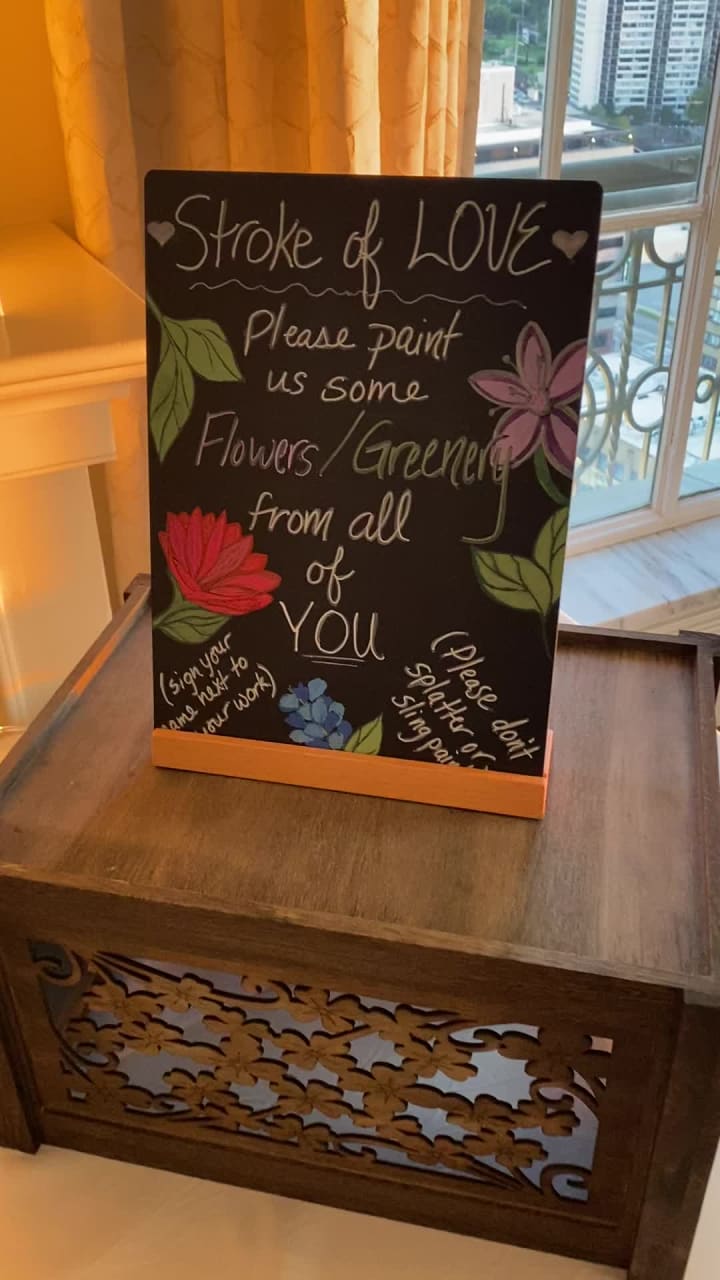 Stroke of LOVE
Please paint
us some
Flowers/Greenery
from all
of
YOU
(sign your
name next to
your work)
(Please don't
splatter or
sling paint